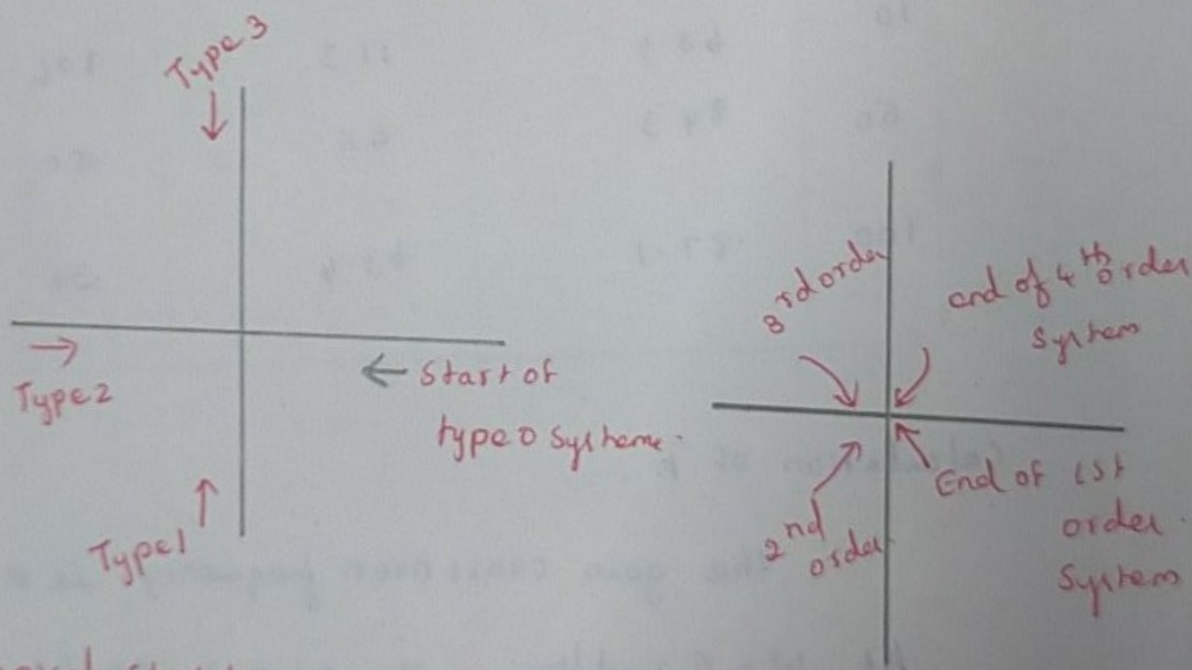 Type 3
Type 2
Start of
type 0 Systeme.
Type 1
3rd order
end of 4th order
System
2nd
order
End of 1st
order.
System